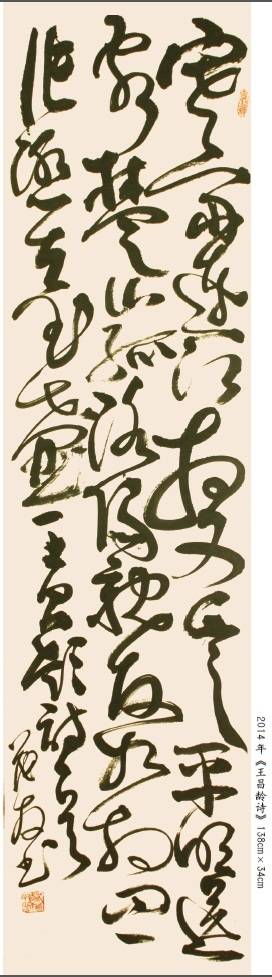 寒雨連江夜入吴平明送
客楚山孤洛陽親友如相問一
片冰心在玉壺王昌齡詩
2014 年《王昌龄诗》138cm×34cm